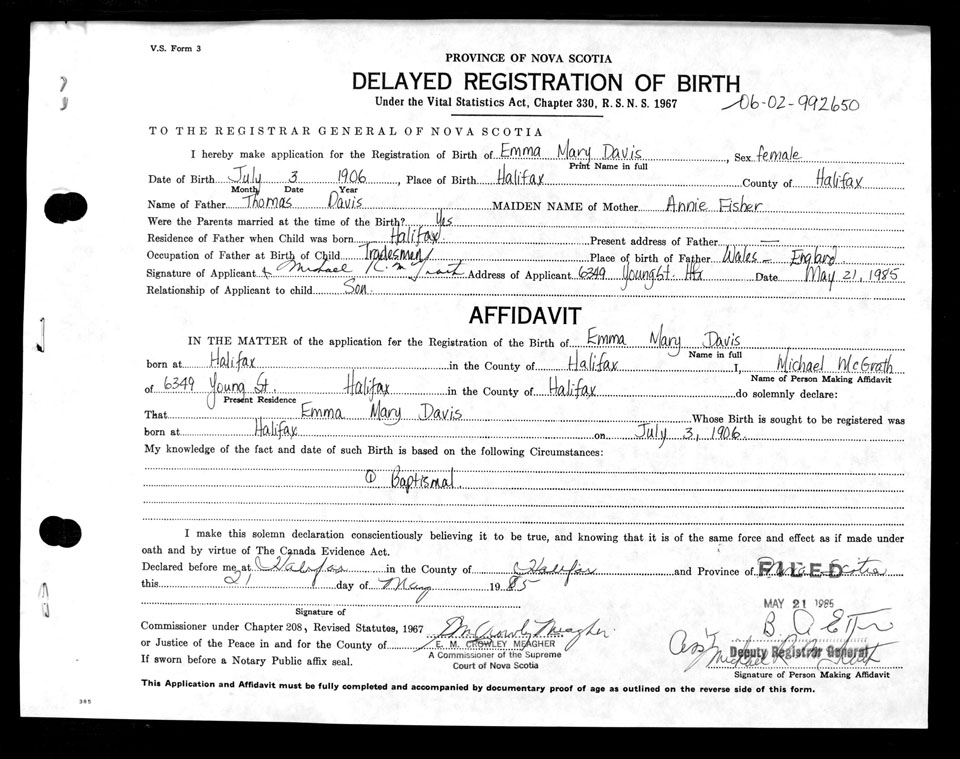 V.S. Form 3
PROVINCE OF NOVA SCOTIA
DELAYED REGISTRATION OF BIRTH
Under the Vital Statistics Act, Chapter 330, R.S.N.S. 1967
06-02-992650
TO THE REGISTRAR GENERAL OF NOVA SCOTIA
I hereby make application for the Registration of Birth of Emma Mary Davis, Sex female
Print Name in full
Date of Birth July 3 1906, Place of Birth Halifax County of Halifax
Month Date Year
Name of Father Thomas Davis MAIDEN NAME of Mother Annie Fisher
Were the Parents married at the time of the Birth? Yes
Residence of Father when Child was born Halifax. Present address of Father —
Occupation of Father at Birth of Child Tradesmen Place of birth of Father Wales - England
Signature of Applicant Michael R. McGrath Address of Applicant 6349 Young St. Hfx Date May 21, 1985
Relationship of Applicant to child Son
AFFIDAVIT
IN THE MATTER of the application for the Registration of the Birth of Emma Mary Davis
Name in full
born at Halifax in the County of Halifax I, Michael McGrath
Name of Person Making Affidavit
of 6349 Young St. Halifax in the County of Halifax do solemnly declare:
Present Residence
That Emma Mary Davis Whose Birth is sought to be registered was
born at Halifax on July 3, 1906.
My knowledge of the fact and date of such Birth is based on the following Circumstances:
① Baptismal.
I make this solemn declaration conscientiously believing it to be true, and knowing that it is of the same force and effect as if made under
oath and by virtue of The Canada Evidence Act.
Declared before me at Halifax in the County of Halifax and Province of Nova Scotia
FILED
this 21 day of May 1985
MAY 21 1985
Signature of
Commissioner under Chapter 208, Revised Statutes, 1967 E M Crowley Meagher
or Justice of the Peace in and for the County of E. M. CROWLEY MEAGHER
A Commissioner of the Supreme
Court of Nova Scotia
If sworn before a Notary Public affix seal.
Ass't Deputy Registrar General
Michael R. McGrath
Signature of Person Making Affidavit
This Application and Affidavit must be fully completed and accompanied by documentary proof of age as outlined on the reverse side of this form.
385